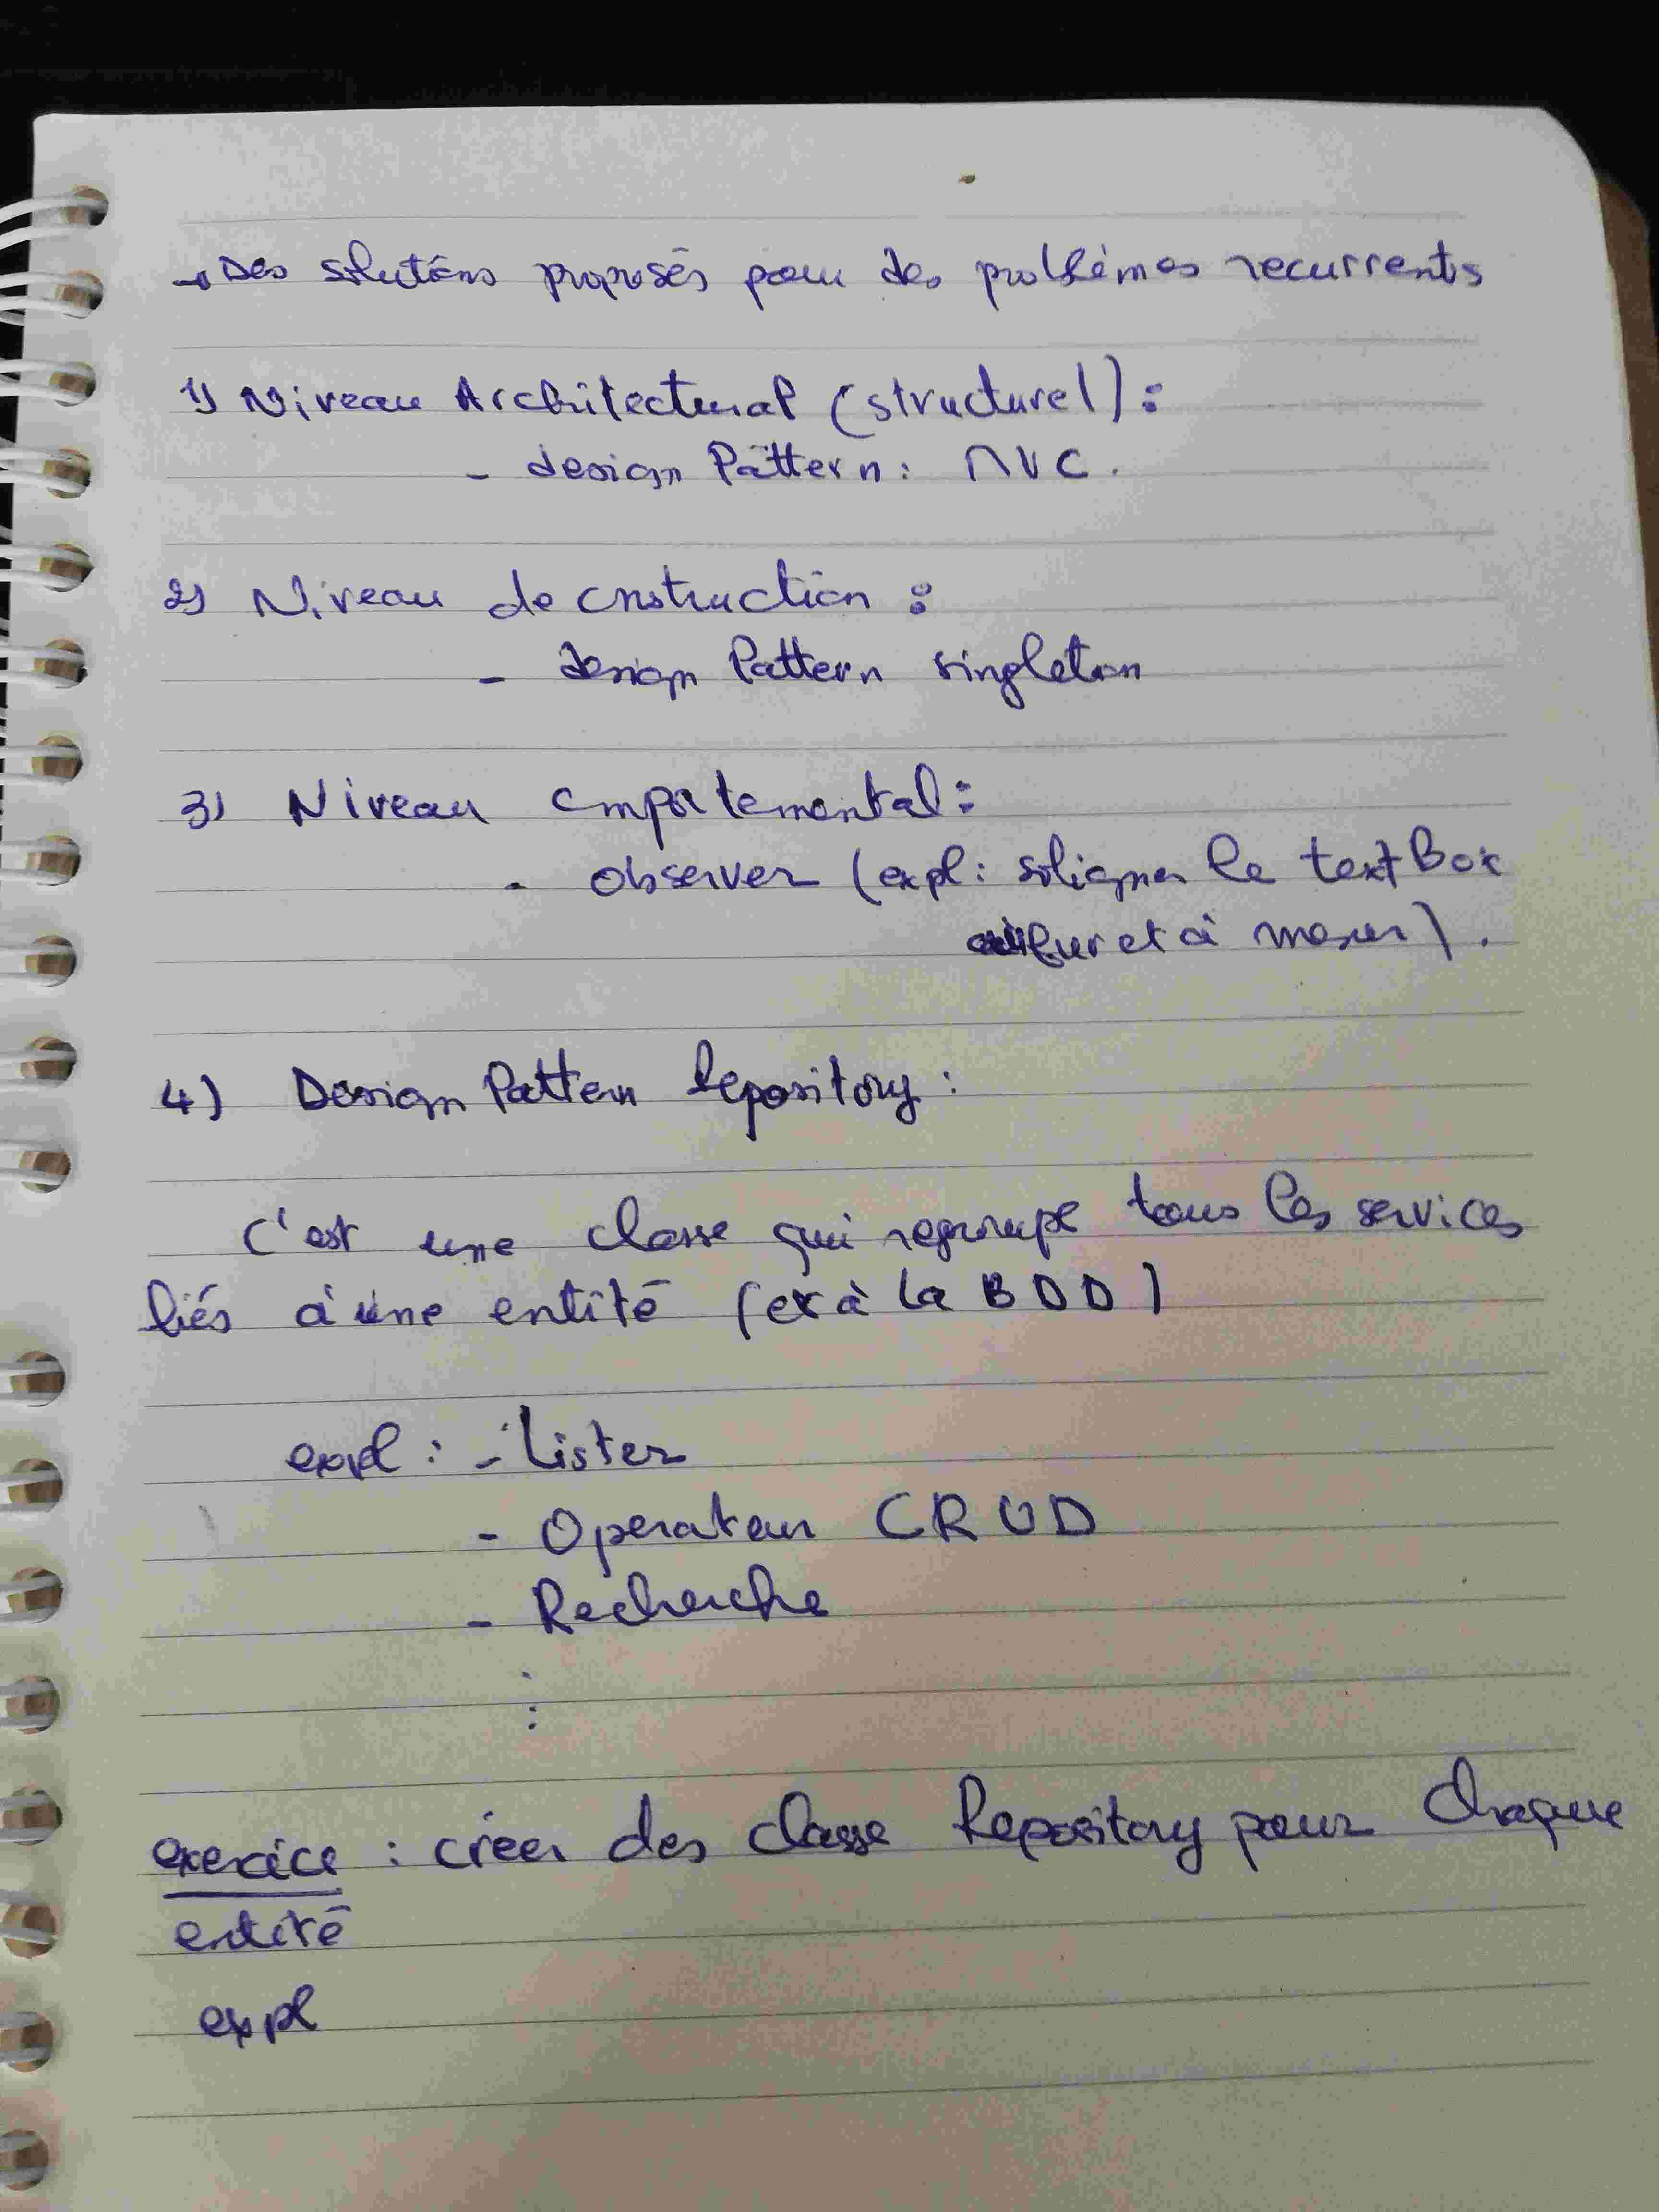 → Des solutions proposés pour des problèmes recurrents
1) Niveau Architectural (structurel) :
- design Pattern : MVC.
2) Niveau de construction :
- design Pattern singleton
3) Niveau comportemental :
- observer (expl : soligner le textBox
fur et à mesur).
4) Design Pattern Repository :
C'est une classe qui regroupe tous les services
liés à une entité (ex à la BDD)
expl : - Lister
- Operateur CRUD
- Recherche
:
exercice : créer des classe Repository pour chaque
entité
expl